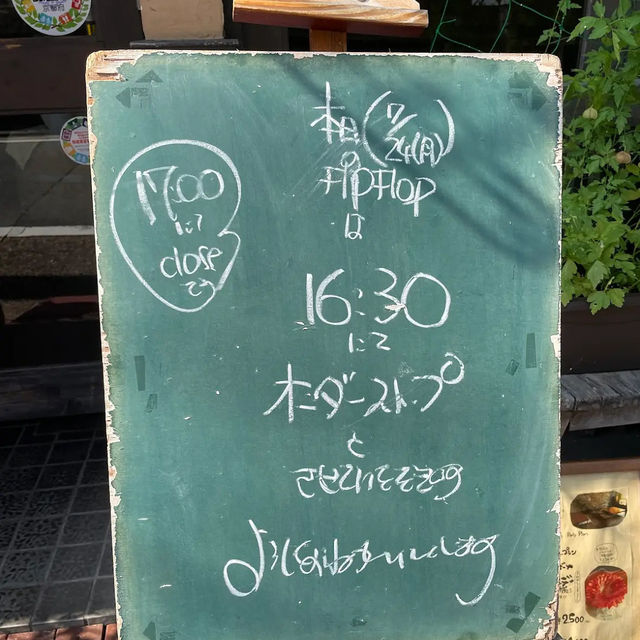 本日(7/24(月))
FlipFlop
は
16:30
にて
オーダーストップ
と
させていただきます
よろしくおねがいいたします
17:00
にて
close
です
2500